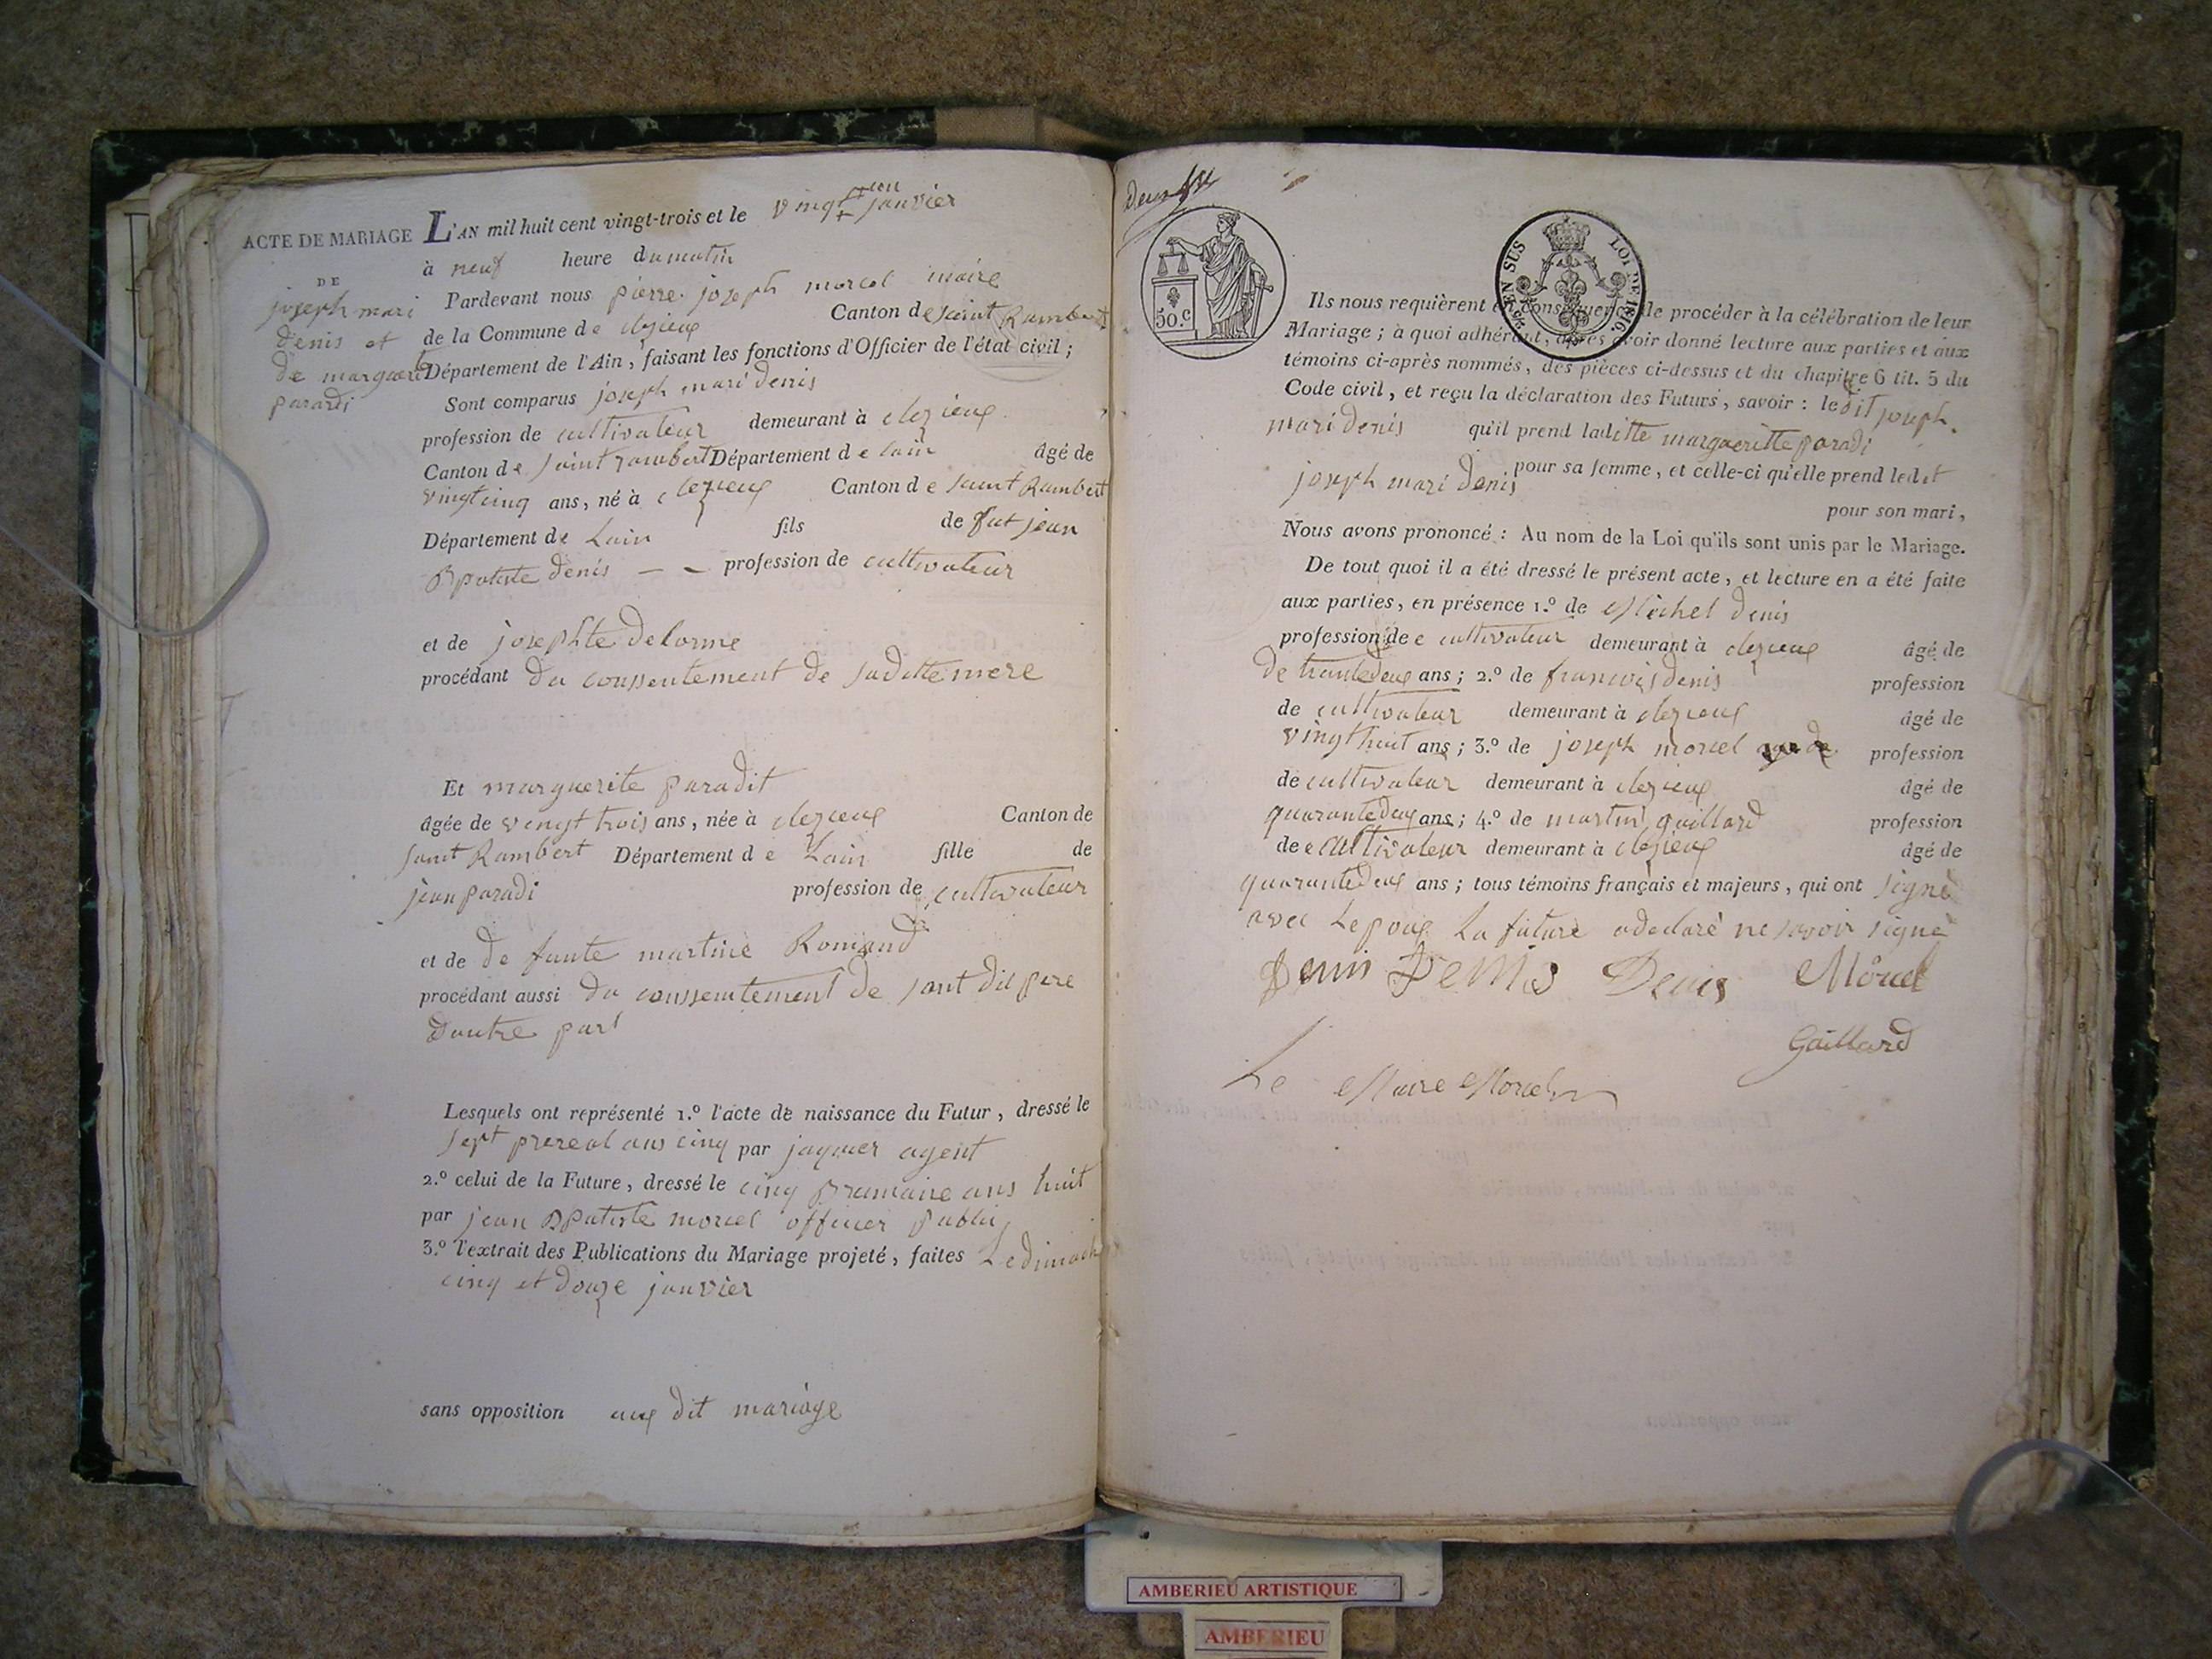 ACTE DE MARIAGE
DE
joseph mari
denis et
de marguerit
paradi
L'AN mil huit cent vingt-trois et le vingt janvier
à neuf heure du matin
Pardevant nous pierre joseph morcel maire
de la Commune de clezieux Canton de saint Rambert
Département de l'Ain, faisant les fonctions d'Officier de l'état civil;
Sont comparus joseph mari denis
profession de cultivateur demeurant à clezieux
Canton de saint rambert Département de lain âgé de
vingt cinq ans, né à clezieux Canton de saint Rambert
Département de Lain fils de fut jean
Bpatiste denis — — profession de cultivateur
et de josephte delorme
procédant du conssentement de sa ditte mere
Et marguerite paradit
âgée de vingt trois ans, née à clezieux Canton de
saint Rambert Département de Lain fille de
jean paradi profession de cultivateur
et de de funte martine Romand
procédant aussi du conssentement de sont dit pere
dautre part
Lesquels ont représenté 1.º l'acte de naissance du Futur, dressé le
sept prereal ans cinq par jaquier agent
2.º celui de la Future, dressé le cinq brumaire ans huit
par jean Bpatiste morcel officier public
3.º l'extrait des Publications du Mariage projeté, faites Le dimach
cinq et douze janvier
sans opposition aux dit mariage
deux
50.c
EN SUS
LOI DE 1816.
Ils nous requièrent en conséquence de procéder à la célébration de leur
Mariage; à quoi adhérant, après avoir donné lecture aux parties et aux
témoins ci-après nommés, des pièces ci-dessus et du chapitre 6 tit. 5 du
Code civil, et reçu la déclaration des Futurs, savoir: le dit joseph
mari denis qu'il prend laditte margueritte paradi
pour sa femme, et celle-ci qu'elle prend ledit
joseph mari denis
pour son mari,
Nous avons prononcé: Au nom de la Loi qu'ils sont unis par le Mariage.
De tout quoi il a été dressé le présent acte, et lecture en a été faite
aux parties, en présence 1.º de Michel denis
profession de cultivateur demeurant à clezieux âgé de
de trantedeux ans; 2.º de francois denis profession
de cultivateur demeurant à clezieux âgé de
vingt huit ans; 3.º de joseph morcel profession
de cultivateur demeurant à clezieux âgé de
quarantedeux ans; 4.º de martin gaillard profession
de cultivateur demeurant à clezieux âgé de
quarantedeux ans; tous témoins français et majeurs, qui ont signé
avec Lepoux La future adeclaré ne savoir signé
Denis Denis Denis Morcel
Gaillard
Le Maire Morcel
AMBERIEU ARTISTIQUE
AMBERIEU